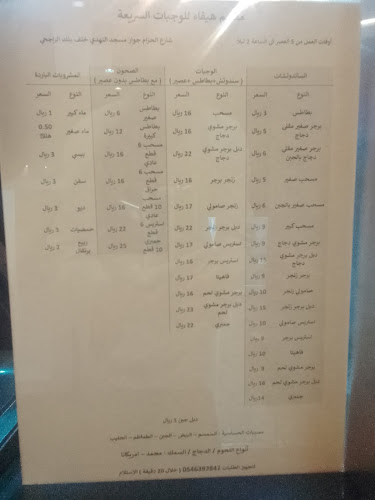 مطعم هيفاء للوجبات السريعة
شارع الحزام جوار مسجد النهدي خلف بنك الراجحي
السندوتشات
النوع السعر
بطاطس 3 ريال
برجر صغير مقلي دجاج 5 ريال
برجر صغير مقلي دجاج بالجبن 6 ريال
مسحب صغير 5 ريال
مسحب صغير بالجبن 6 ريال
مسحب كبير
برجر مشوي دجاج 9 ريال
دبل برجر مشوي دجاج 15 ريال
برجر زنجر 9 ريال
صامولي زنجر 10 ريال
دبل برجر زنجر 15 ريال
استربس صامولي 10 ريال
استربس برجر 9 ريال
فاهيتا 10 ريال
برجر مشوي لحم 9 ريال
دبل برجر مشوي لحم 16 ريال
الوجبات
( سندوتش+بطاطس +عصير )
النوع السعر
مسحب 16 ريال
برجر مشوي دجاج 16 ريال
دبل برجر مشوي دجاج 22 ريال
زنجر برجر 16 ريال
زنجر صامولي 17 ريال
دبل برجر زنجر 22 ريال
استربس صامولي 17 ريال
استربس برجر 16 ريال
فاهيتا 17 ريال
برجر مشوي لحم 16 ريال
دبل برجر مشوي لحم 23 ريال
22 ريال
الصحون
( مع بطاطس بدون عصير )
النوع السعر
بطاطس صغير 6 ريال
بطاطس كبيرة 12 ريال
مسحب 6 قطع عادي 15 ريال
مسحب 6 قطع حراق 16 ريال
مسحب 10 قطع عادي 18 ريال
استربس 6 قطع 22 ريال
10 قطع 25 ريال
المشروبات الباردة
النوع السعر
ماء كبير 1 ريال
ماء صغير 0.50 هللة
بيبسي 3 ريال
سفن 3 ريال
ديو 3 ريال
حمضيات 3 ريال
ربيع برتقال 2 ريال
دبل جبن 1 ريال
مسببات الحساسية : السمسم – البيض – الجبن – الطماطم – الحليب
أنواع اللحوم / الدجاج / السمك : مجمد – امريكانا
لتجهيز الطلبات 0546393942 ( خلال 10 دقيقة ) الاستلام